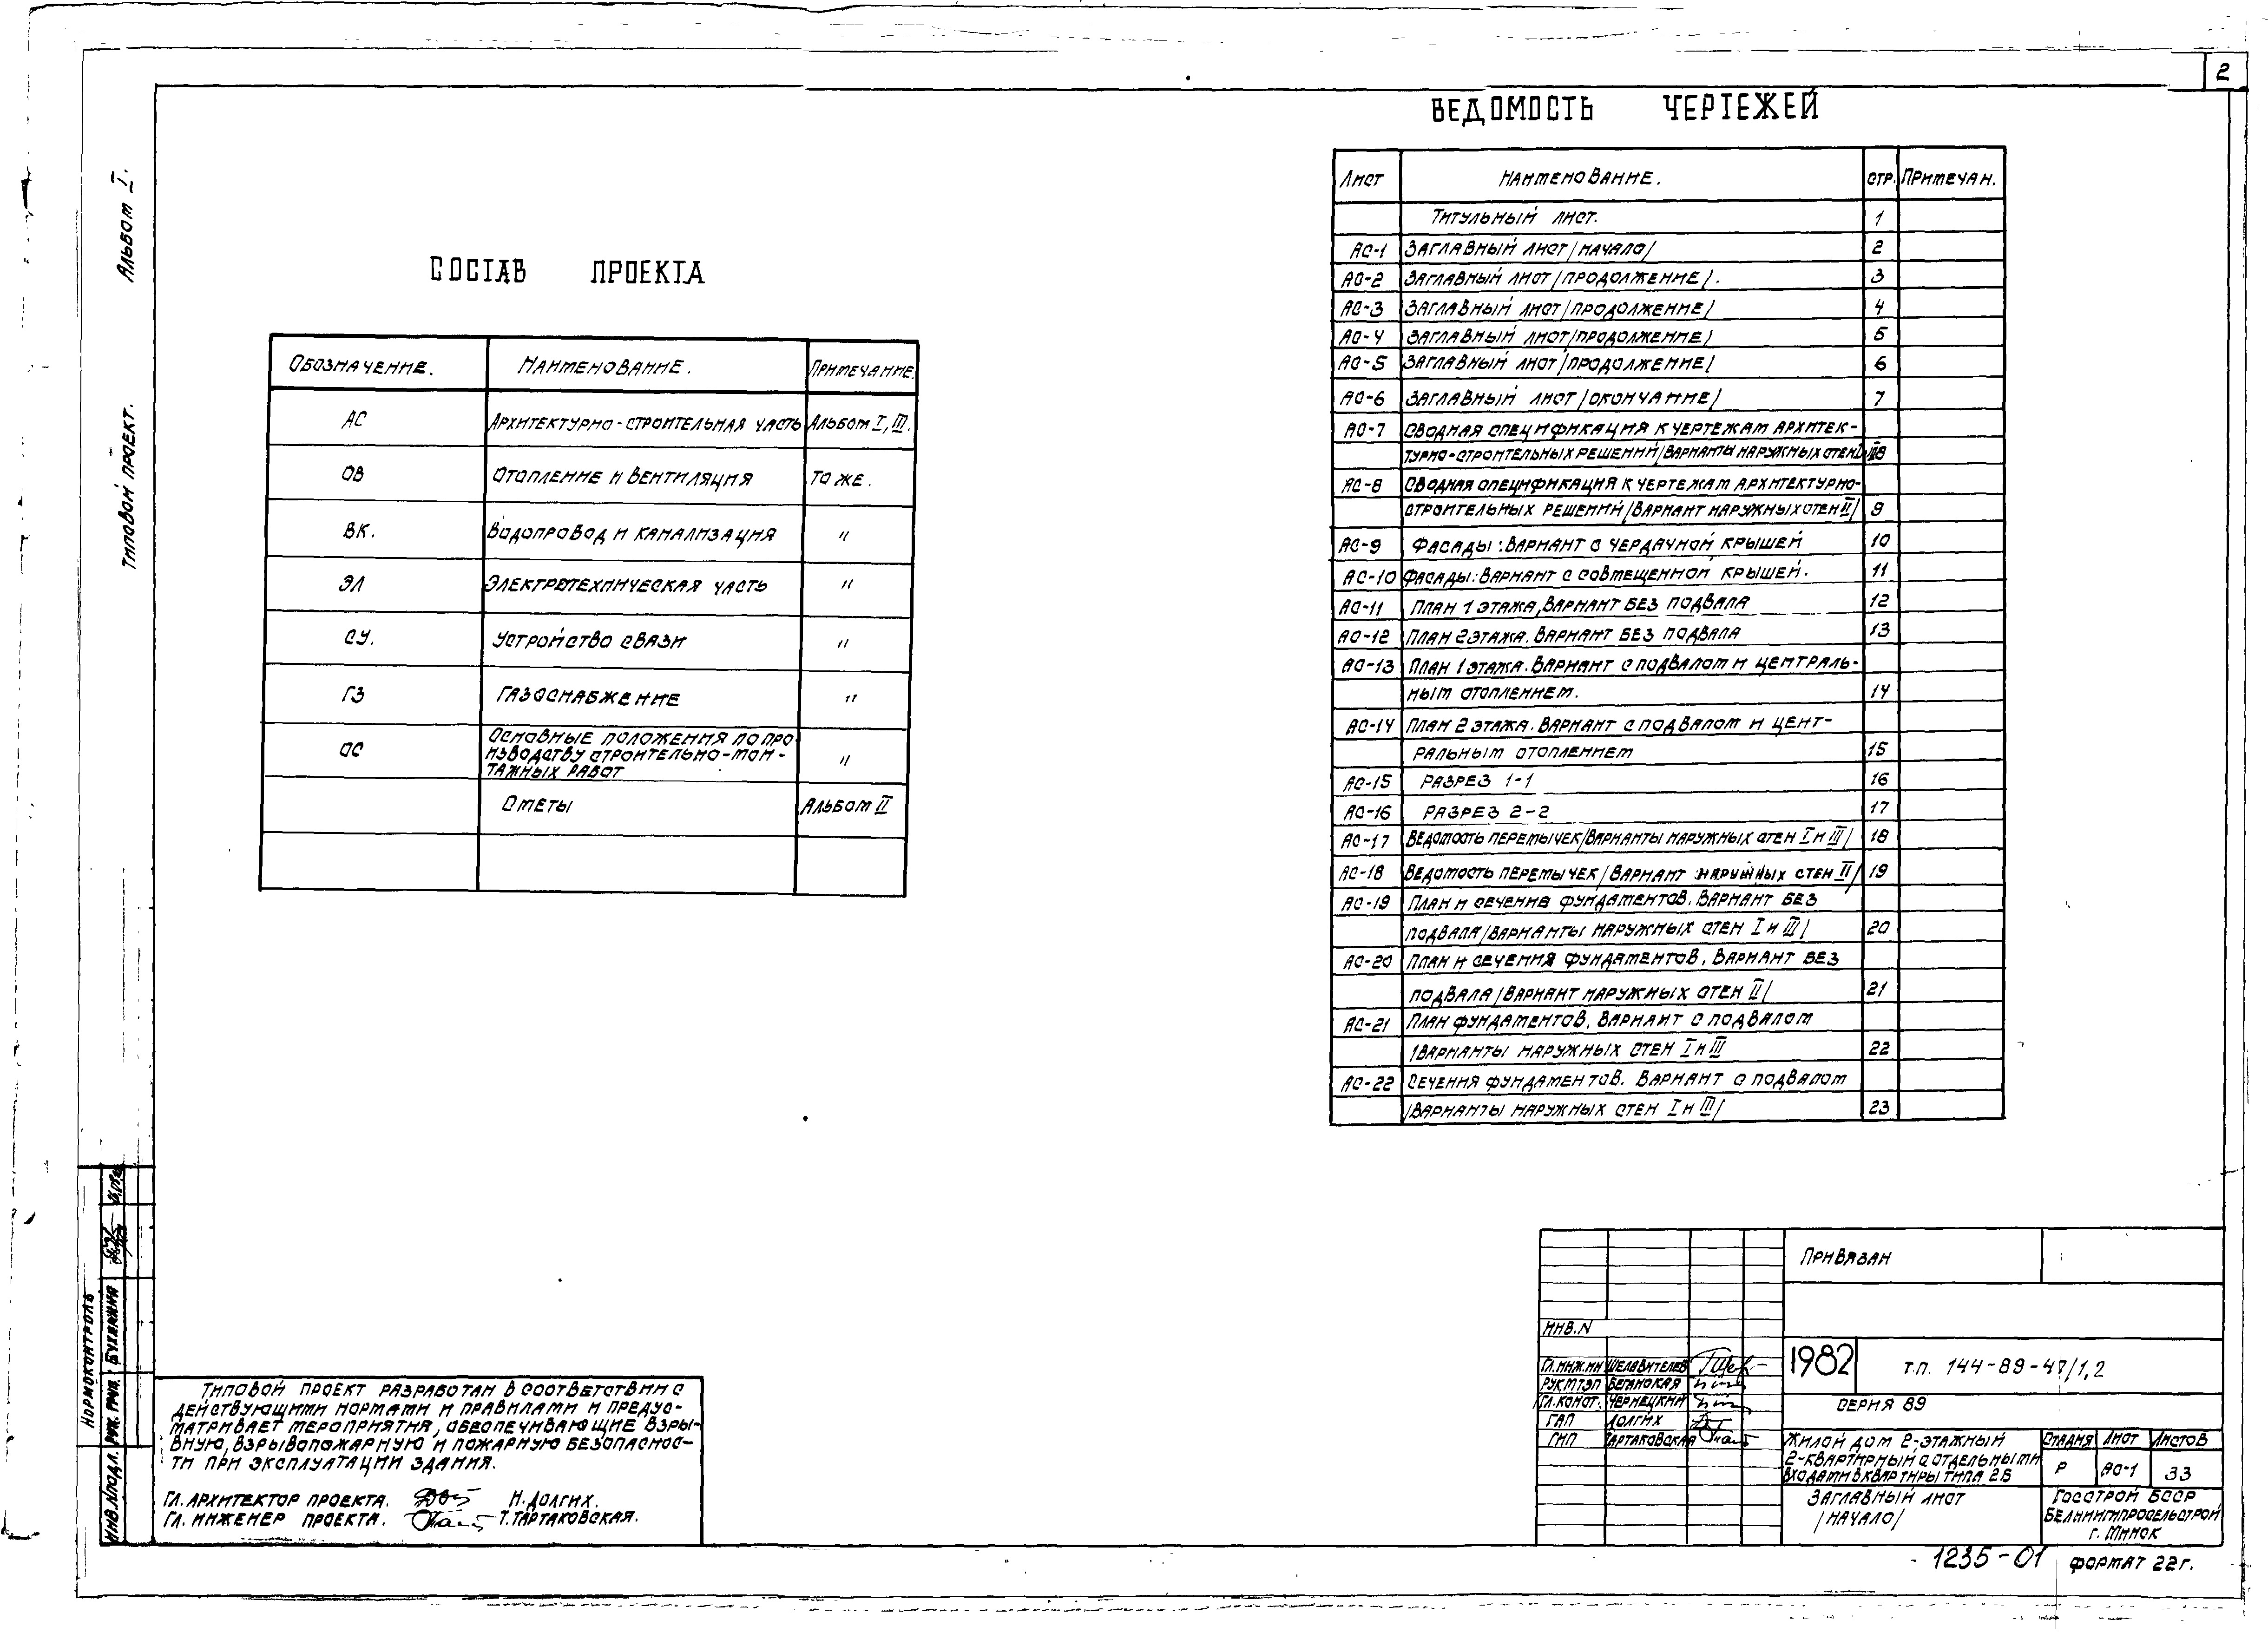 2
Альбом I.
Типовой проект.
СОСТАВ ПРОЕКТА
Обозначение. Наименование. Примечание.
АС Архитектурно-строительная часть Альбом I, III.
ОВ Отопление и вентиляция То же.
ВК. Водопровод и канализация "
ЭЛ Электротехническая часть "
СУ. Устройство связи "
ГЗ Газоснабжение "
ОС Основные положения по про-
изводству строительно-мон-
тажных работ "
Сметы Альбом II
ВЕДОМОСТЬ ЧЕРТЕЖЕЙ
Лист Наименование. стр. Примечан.
Титульный лист. 1
АС-1 Заглавный лист /начало/ 2
АС-2 Заглавный лист /продолжение/. 3
АС-3 Заглавный лист /продолжение/ 4
АС-4 Заглавный лист /продолжение/ 5
АС-5 Заглавный лист /продолжение/ 6
АС-6 Заглавный лист /окончание/ 7
АС-7 Сводная спецификация к чертежам архитек-
турно-строительных решений /варианты наружных стен I, III 8
АС-8 Сводная спецификация к чертежам архитектурно-
строительных решений /вариант наружных стен II/ 9
АС-9 Фасады: вариант с чердачной крышей 10
АС-10 Фасады: вариант с совмещенной крышей. 11
АС-11 План 1 этажа, вариант без подвала 12
АС-12 План 2 этажа. Вариант без подвала 13
АС-13 План 1 этажа. Вариант с подвалом и централь-
ным отоплением. 14
АС-14 План 2 этажа. Вариант с подвалом и цент-
ральным отоплением 15
АС-15 Разрез 1-1 16
АС-16 Разрез 2-2 17
АС-17 Ведомость перемычек /варианты наружных стен I и III/ 18
АС-18 Ведомость перемычек /вариант наружных стен II/ 19
АС-19 План и сечение фундаментов. Вариант без
подвала /варианты наружных стен I и III/ 20
АС-20 План и сечения фундаментов, вариант без
подвала /вариант наружных стен II/ 21
АС-21 План фундаментов, вариант с подвалом
/варианты наружных стен I и III 22
АС-22 Сечения фундаментов. Вариант с подвалом
/варианты наружных стен I и III/ 23
Нормоконтроль
Рук. груп. Бухаркина
Инв.№подл.
Типовой проект разработан в соответствии с
действующими нормами и правилами и предус-
матривает мероприятия, обеспечивающие взры-
вную, взрывопожарную и пожарную безопаснос-
ти при эксплуатации здания.
Гл. архитектор проекта. Н. Долгих.
Гл. инженер проекта. Т. Тартаковская.
Привязан
Инв. N
1982 т.п. 144-89-47/1,2
серия 89
Гл. инж. ин Шелавителев
Рук МТЭП Беганская
Гл. конст. Чернецкий
ГАП Долгих
ГИП Тартаковская
Жилой дом 2-этажный
2-квартирный с отдельными
входами в квартиры типа 2Б
Стадия Лист Листов
Р АС-1 33
Заглавный лист
/начало/
Госстрой БССР
Белниигипросельстрой
г. Минск
1235-01 формат 22г.